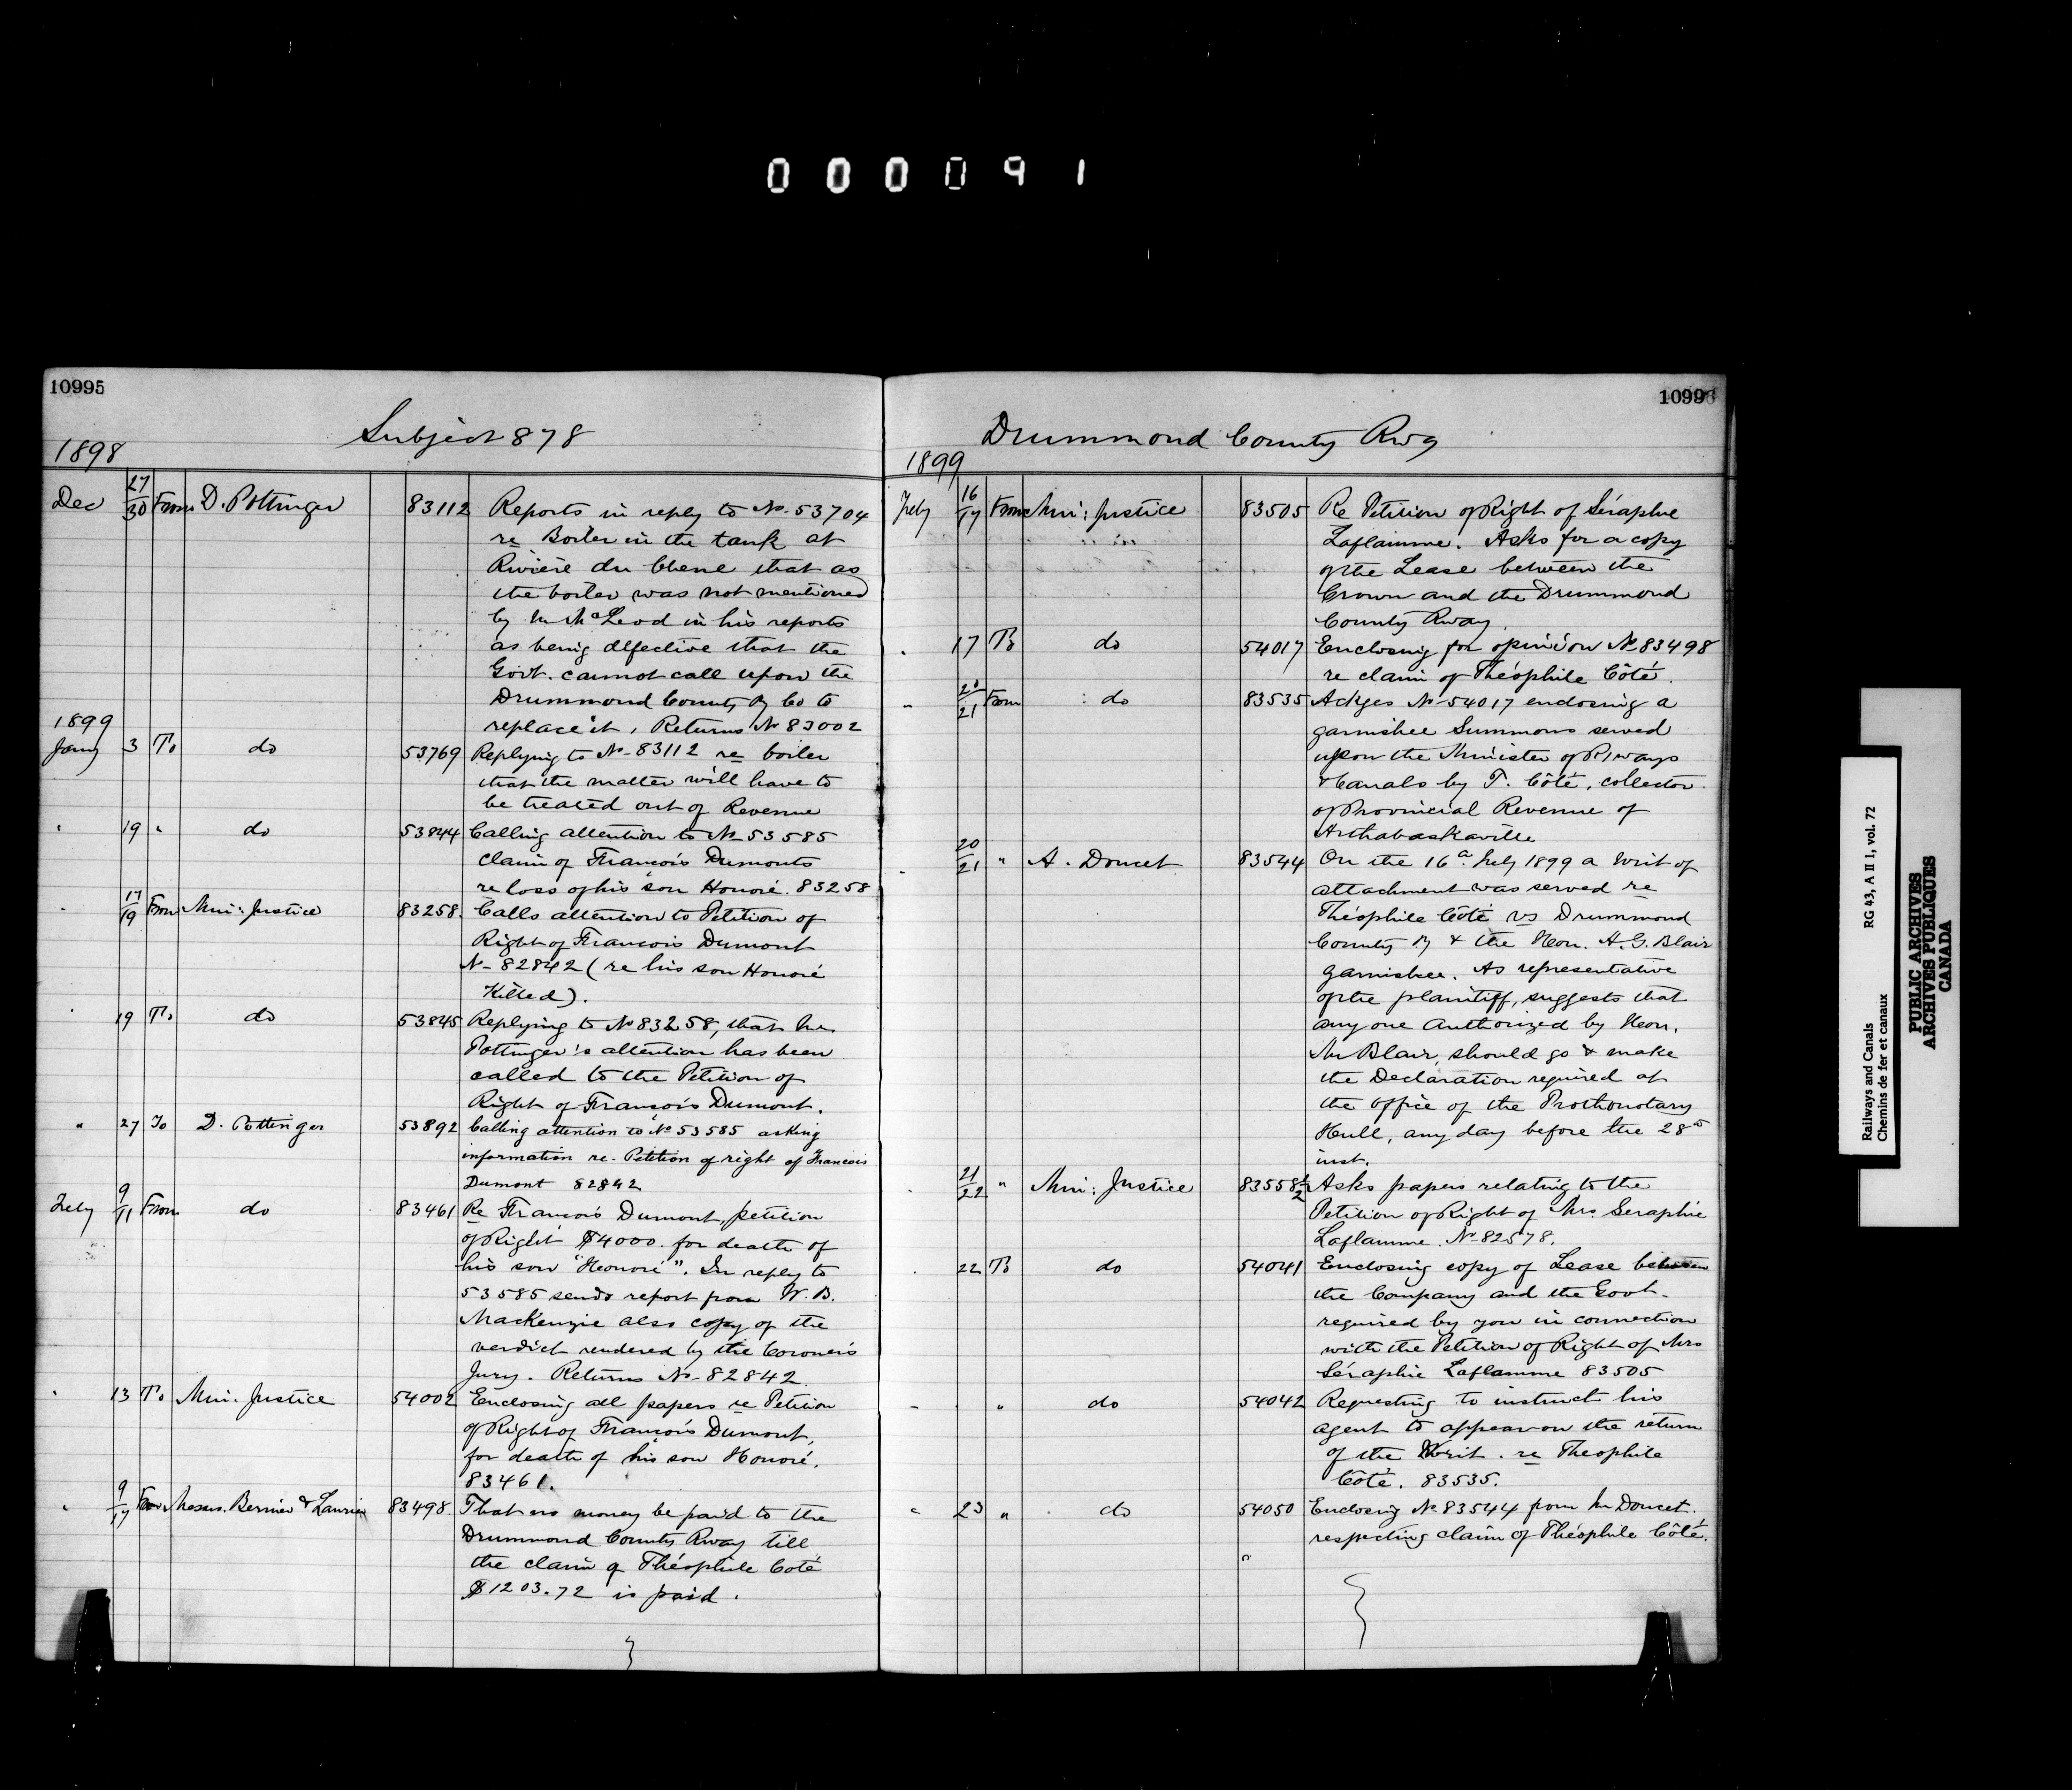 000091
10995
Subject 878
1898
Dec 27/30 From D. Pottinger 83112 Reports in reply to No. 53704
re Boiler in the tank at
Rivière du Chene that as
the boiler was not mentioned
by Mr McLeod in his reports
as being defective that the
Govt. cannot call upon the
Drummond County Ry Co to
replace it. Returns No 83002
1899
Jany 3 To do 53769 Replying to No. 83112 re boiler
that the matter will have to
be treated out of Revenue
" 19 " do 53844 Calling attention to No 53585
claim of Francois Dumonts
re loss of his son Honoré. 83258
" 17/19 From Min: Justice 83258. Calls attention to Petition of
Right of Francois Dumont
No. 82842 (re his son Honoré
Killed).
" 19 To do 53845 Replying to No 83258, that Mr.
Pottinger's attention has been
called to the Petition of
Right of François Dumont.
" 27 To D. Pottinger 53892 Calling attention to No 53585 asking
information re. Petition of right of Francois
Dumont 82842
Feby 9/11 From do 83461 Re François Dumont, petition
of Right $4000. for death of
his son "Honoré". In reply to
53585 sends report from W. B.
Mackenzie also copy of the
verdict rendered by the Coroner's
Jury. Returns No. 82842.
" 13 To Min. Justice 54002 Enclosing all papers re Petition
of Right of François Dumont,
for death of his son Honoré.
83461.
" 9/17 From Messrs. & Laurier 83498. That no money be paid to the
Drummond County Rway till
the claim of Théophile Coté
$1203.72 is paid.
1099
Drummond County Rwy
1899
Feby 16/17 From Min: Justice 83505 Re Petition of Right of Séraphie
Laflamme. Asks for a copy
of the Lease between the
Crown and the Drummond
County Rway.
" 17 To do 54017 Enclosing for opinion No 83498
re claim of Théophile Côté.
" 20/21 From do 83535 Ackges No 54017 enclosing a
garnishee Summons served
upon the Minister of Rlways
& Canals by T. Côté, collector
of Provincial Revenue of
Arthabaskaville
" 20/21 " A. Doucet 83544 On the 16th Feby 1899 a Writ of
attachment was served re
Théophile Côté vs Drummond
County Ry & the Hon. A. G. Blair
garnishee. As representative
of the plaintiff, suggests that
any one authorized by Hon.
Mr Blair, should go & make
the Declaration required at
the office of the Prothonotary
Hull, any day before the 28th
inst.
" 21/22 " Min: Justice 83558½ Asks papers relating to the
Petition of Right of Mrs. Seraphie
Laflamme. No. 82578.
" 22 To do 54041 Enclosing copy of Lease between
the Company and the Govt.
required by you in connection
with the Petition of Right of Mrs
Séraphie Laflamme 83505
" " do 54042 Requesting to instruct his
agent to appear on the return
of the Writ. re Theophile
Coté. 83535.
" 23 " do 54050 Enclosing No. 83544 from Mr Doucet.
respecting claim of Théophile Côté.
"
Railways and Canals RG 43, A II 1, vol. 72
Chemins de fer et canaux
PUBLIC ARCHIVES
ARCHIVES PUBLIQUES
CANADA